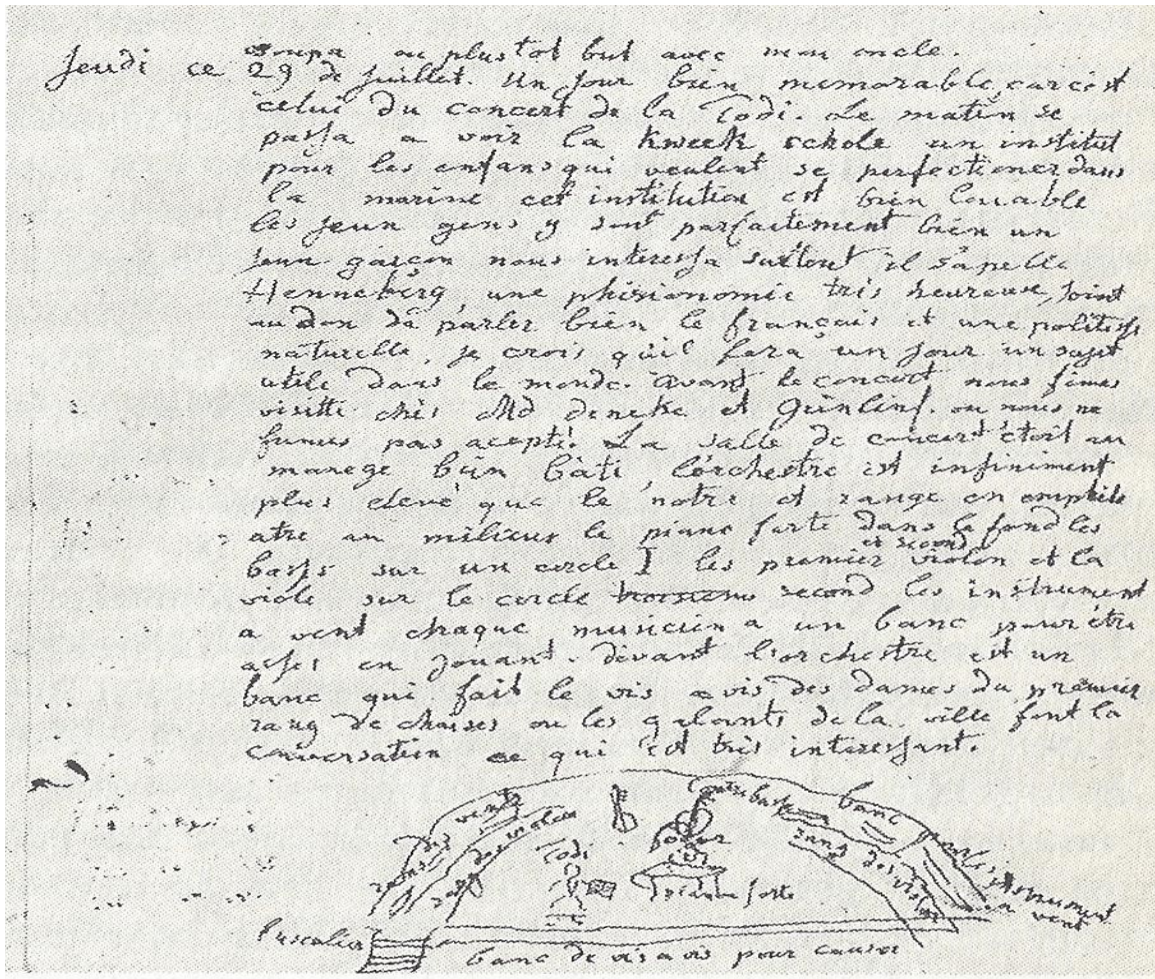 soupa ou plustot but avec mon oncle.
Jeudi ce 29 de Juillet. Un jour bien memorable, car c'est
celui du concert de la Todi. Le matin se
passa a voir la Kweek schole un institut
pour les enfans qui veulent se perfectioner dans
la marine cet institution est bien louable
les jeun gens y sont parfaitement bien un
jeun garçon nous interessa surtout il s'apelle
Henneberg, une phisionomie tres heureuse, joint
au don de parler bien le français et une politesse
naturelle, je crois qu'il fera un jour un sujet
utile dans le monde. avant le concert nous fimes
visitte chés Md deneke et ou nous ne
fumes pas acepté. La salle de concert étoit un
manege bien bâti, l'orchestre est infiniment
plus elevé que le notre et range en empité
atre au milieux le piano forte dans le fond les
basses sur un cercle I les premier et second violon et la
viole sur le cercle second les instrument
a vent chaque musicien a un banc pour étre
asses en jouant. devant l'orchestre est un
banc qui fait le vis a vis des dames du premier
rang de chaises ou les galants de la ville font la
conversation ce qui est tres interessant.
des vents
rang des violon
Todi
contrebasse
banc pour les instrument a vent
rang des violon
pianno forte
l'escalier
banc de vis a vis pour causer